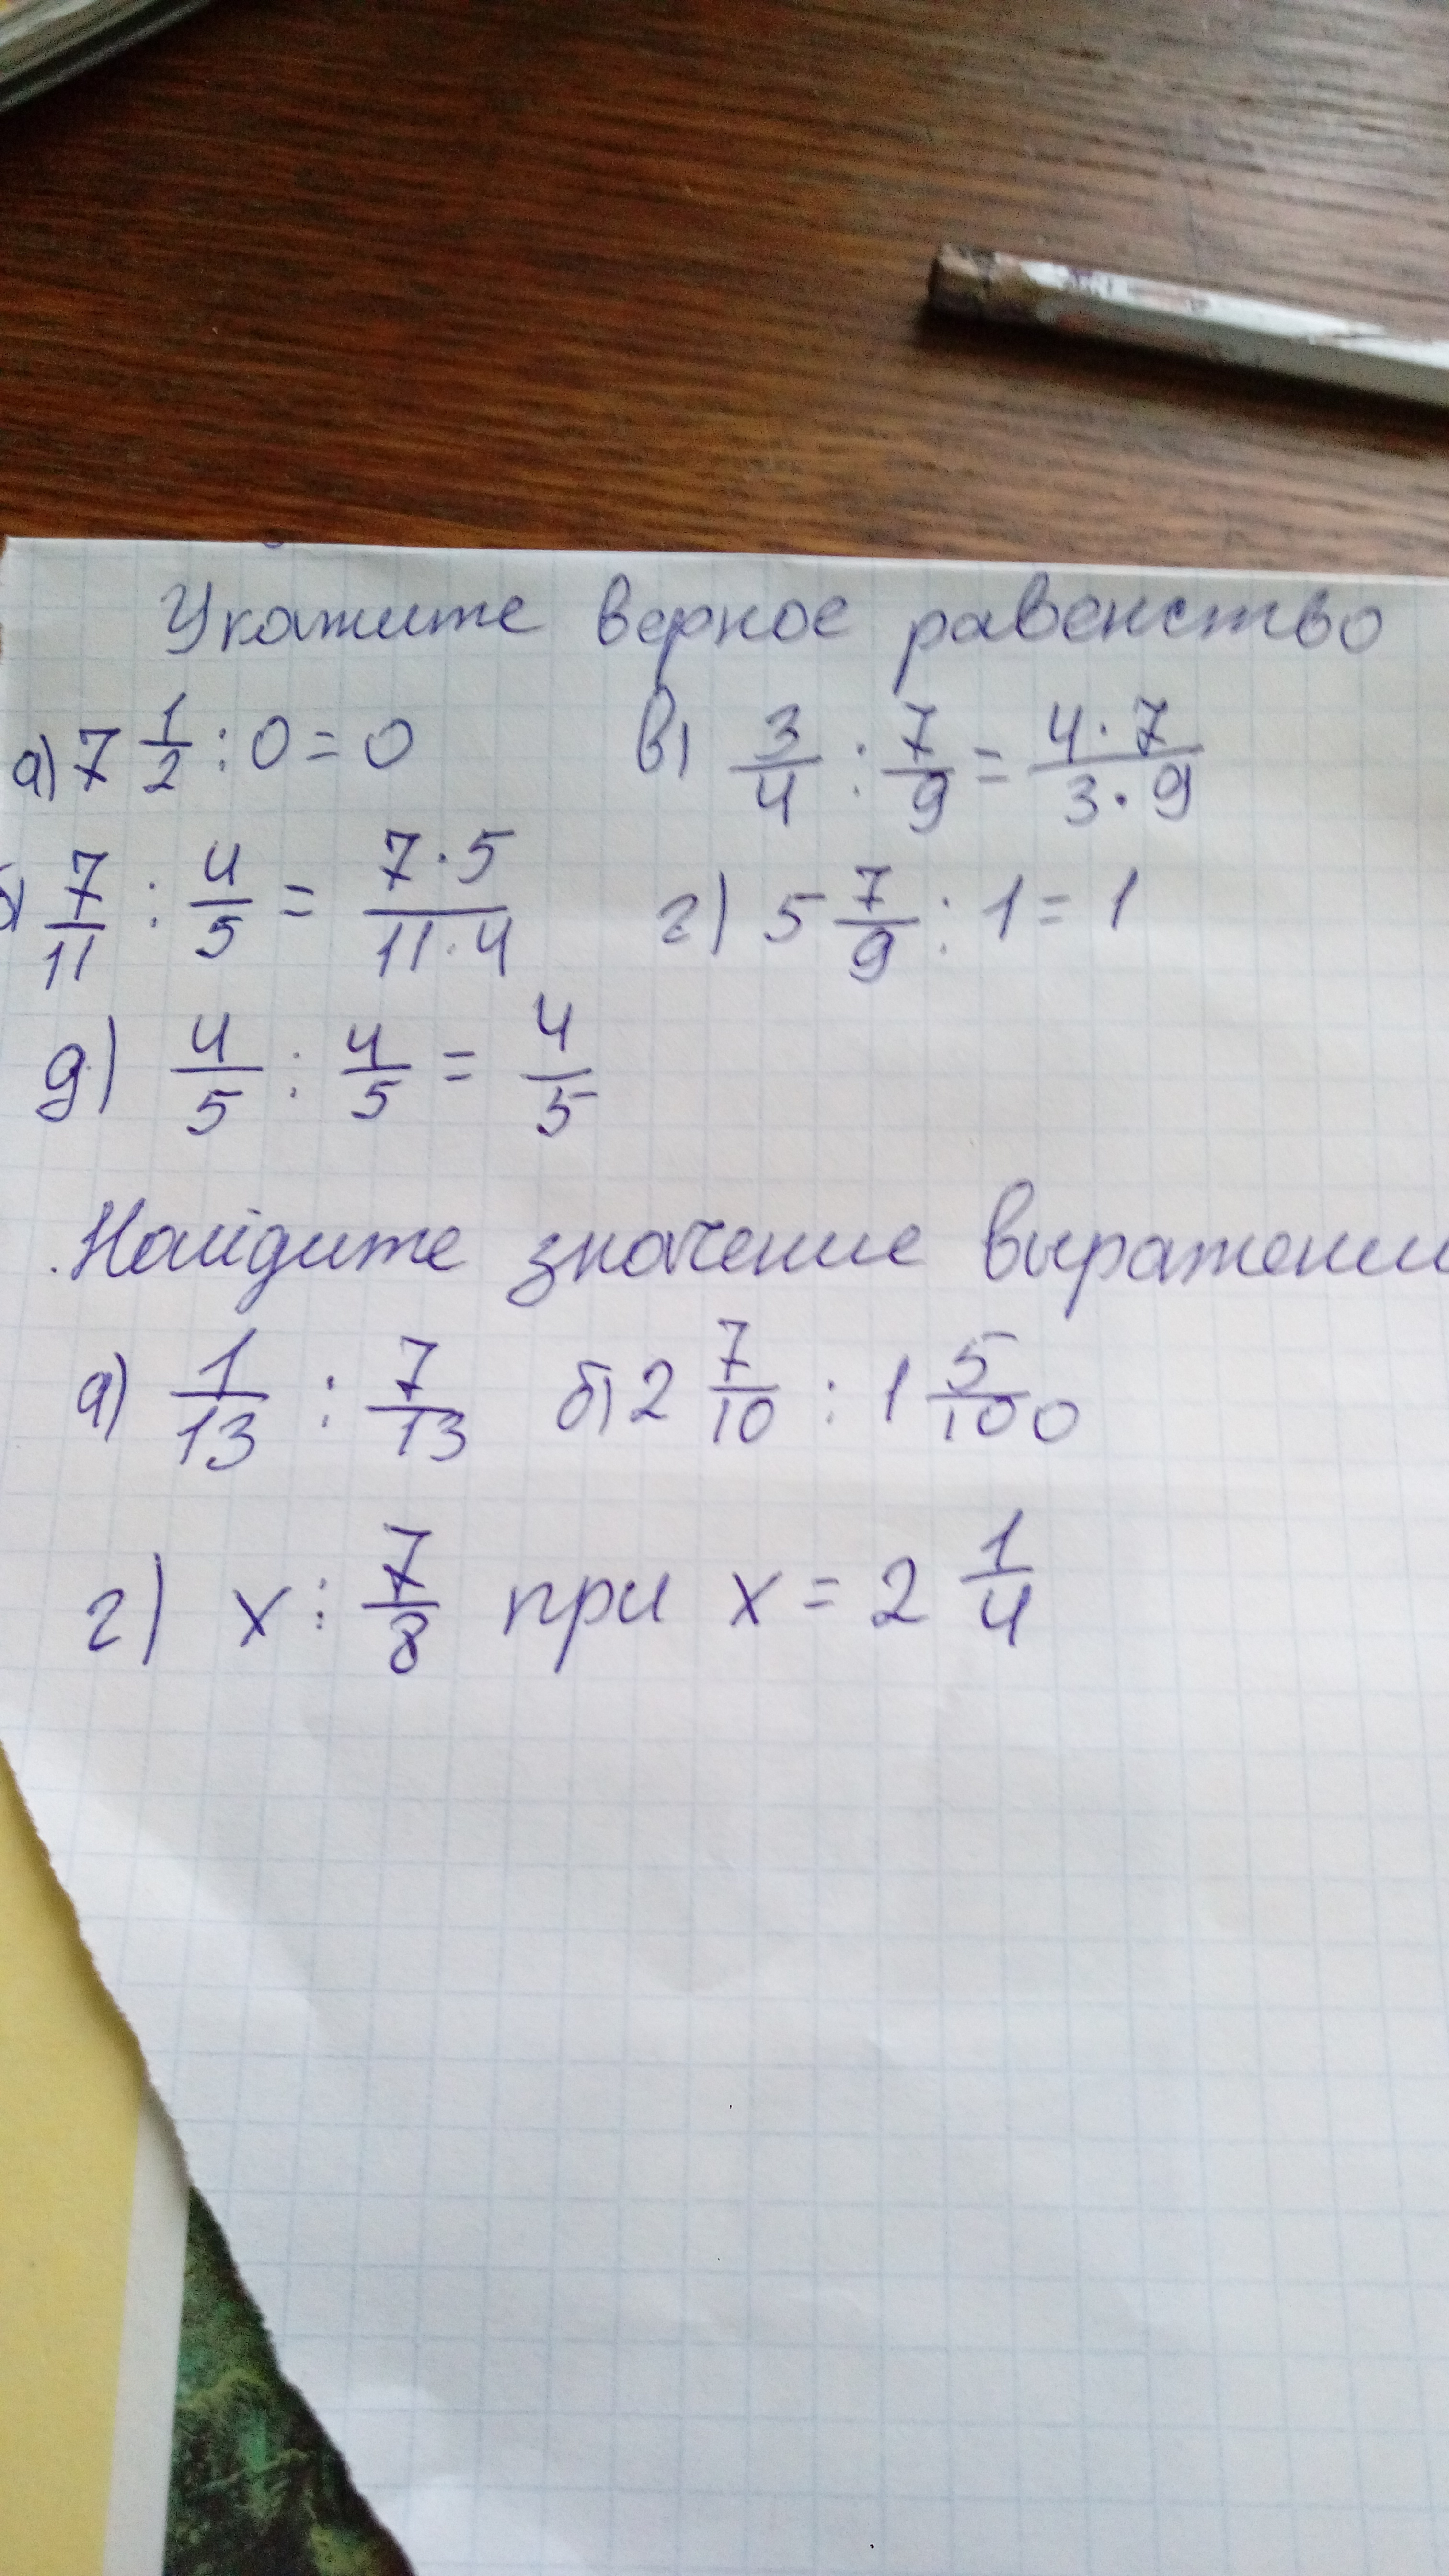 Укажите верное равенство
а) 7 1/2 : 0 = 0 в) 3/4 : 7/9 = 4·7/3·9
б) 7/11 : 4/5 = 7·5/11·4 г) 5 7/9 : 1 = 1
д) 4/5 : 4/5 = 4/5
Найдите значение выражени
а) 1/13 : 7/13 б) 2 7/10 : 1 5/100
г) x : 7/8 при x = 2 1/4